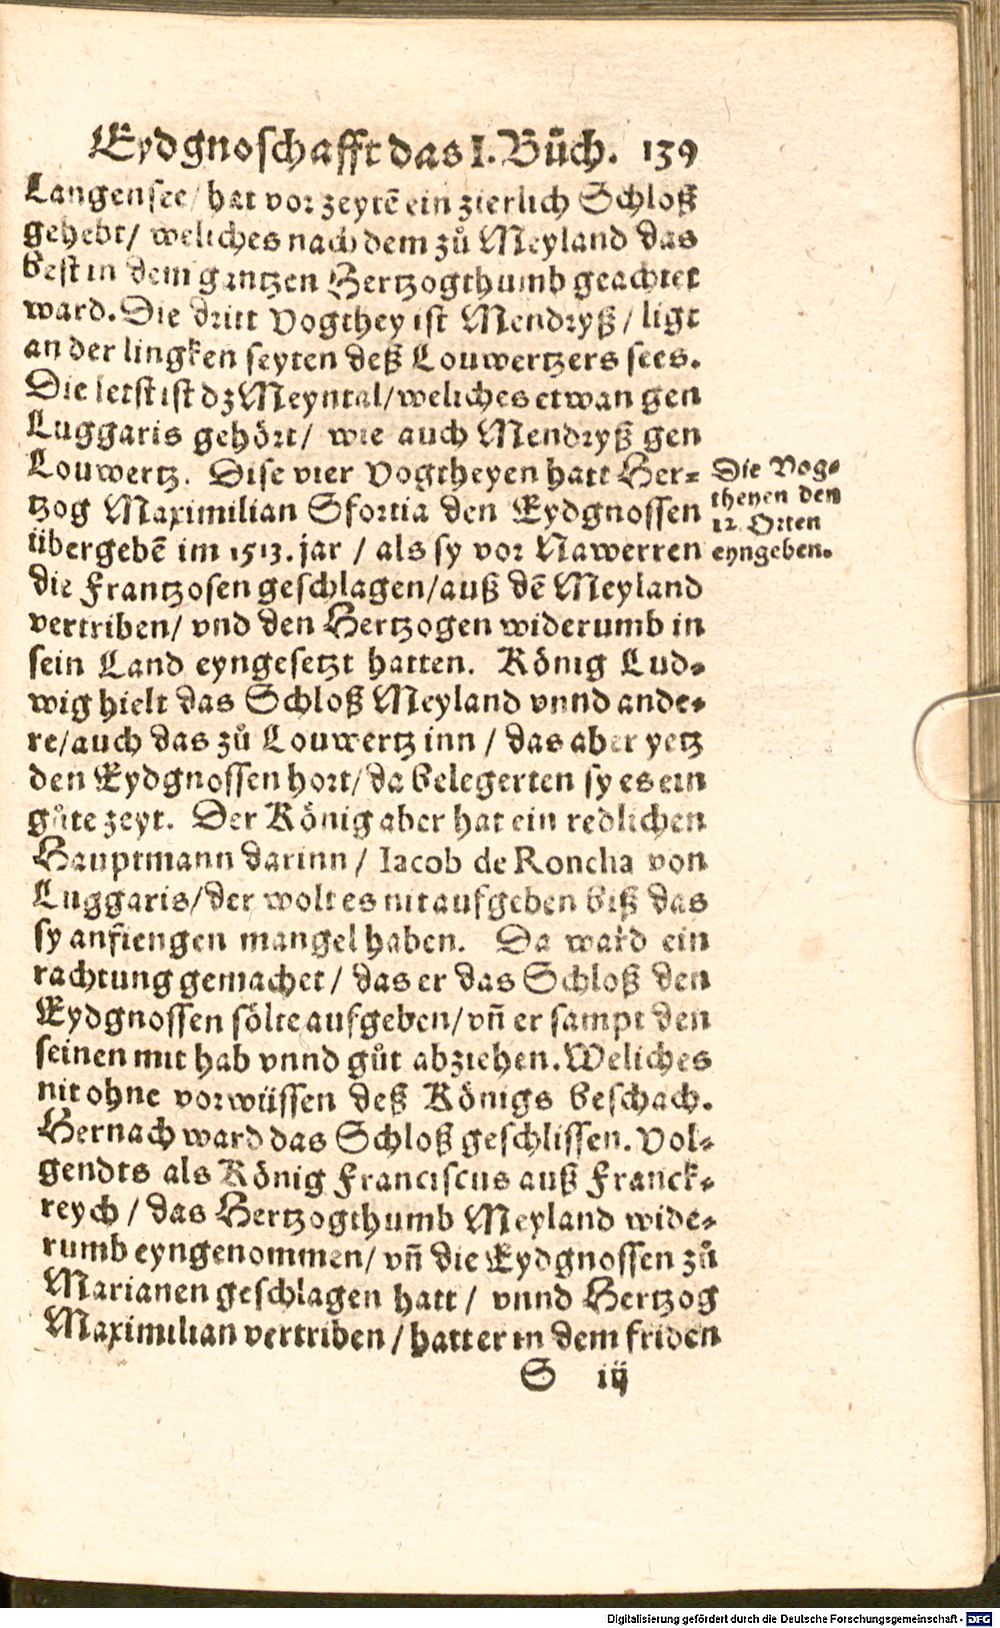 Eydgnoschafft das I. Bůch. 139
Langensee/ hat vor zeytē ein zierlich Schloß
gehebt/ weliches nach dem zů Meyland das
best in dem gantzen Hertzogthumb geachtet
ward. Die dritt Vogthey ist Mendryß / ligt
an der lingken seyten deß Louwertzers sees.
Die letst ist dz Meyntal/ weliches etwan gen
Luggaris gehört/ wie auch Mendryß gen
Louwertz. Dise vier Vogtheyen hatt Her-
tzog Maximilian Sfortia den Eydgnossen
übergebē im 1513. jar / als sy vor Nawerren
die Frantzosen geschlagen/ auß dē Meyland
vertriben/ vnd den Hertzogen widerumb in
sein Land eyngesetzt hatten. König Lud-
wig hielt das Schloß Meyland vnnd ande-
re/ auch das zů Louwertz inn / das aber yetz
den Eydgnossen hort/ da belegerten sy es ein
gůte zeyt. Der König aber hat ein redlichen
Hauptmann darinn / Iacob de Roncha von
Luggaris/ der wolt es nit aufgeben biß das
sy anfiengen mangel haben. Da ward ein
rachtung gemachet / das er das Schloß den
Eydgnossen sölte aufgeben/ vñ er sampt den
seinen mit hab vnnd gůt abziehen. Weliches
nit ohne vorwüssen deß Königs beschach.
Hernach ward das Schloß geschlissen. Vol-
gendts als König Franciscus auß Franck-
reych / das Hertzogthumb Meyland wide-
rumb eyngenommen/ vñ die Eydgnossen zů
Marianen geschlagen hatt / vnnd Hertzog
Maximilian vertriben / hatt er in dem friden
S iij
Die Vog-
theyen den
12. Orten
eyngeben.
Digitalisierung gefördert durch die Deutsche Forschungsgemeinschaft - DFG